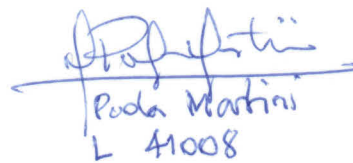 Poda Martini
L 41008